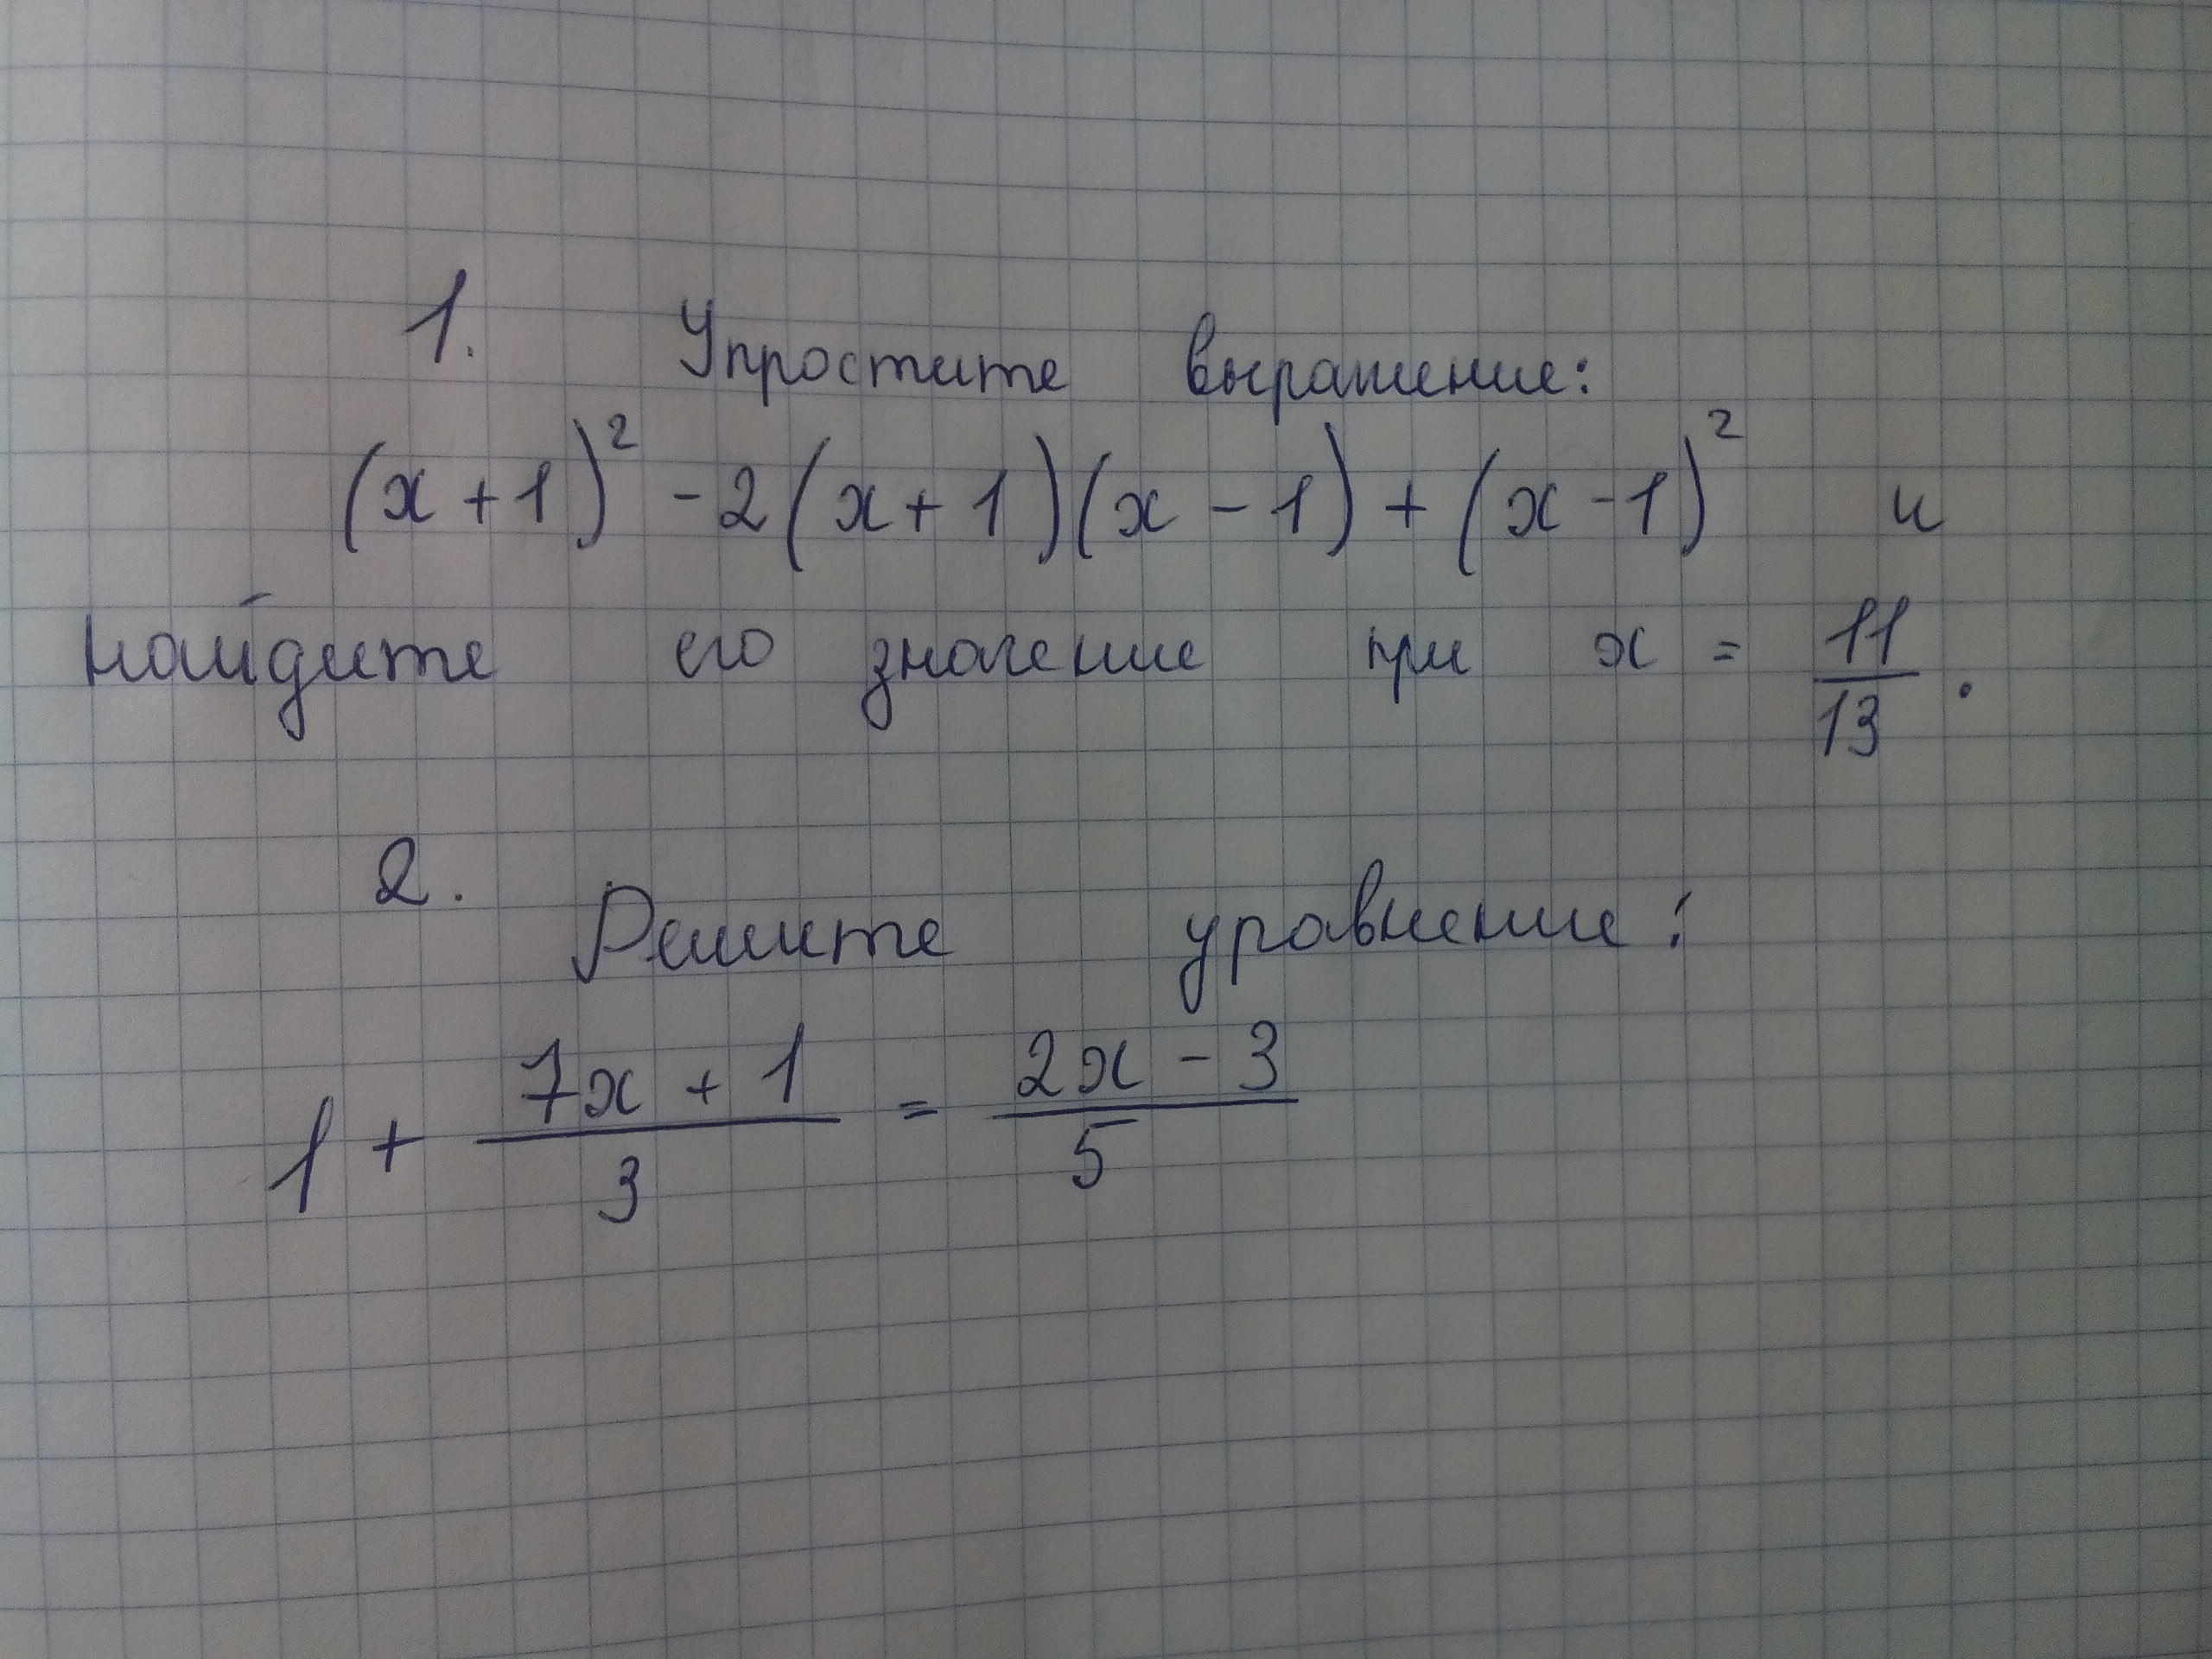 1. Упростите выражение:
(x+1)² - 2(x+1)(x-1) + (x-1)² и
найдите его значение при x = 11/13.
2. Решите уравнение:
1 + (7x+1)/3 = (2x-3)/5